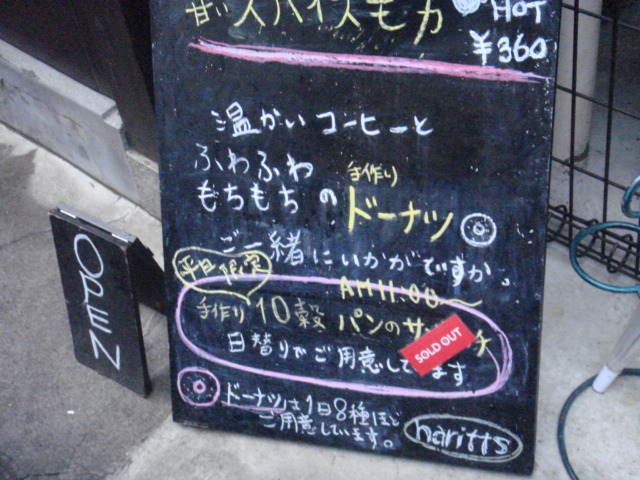 甘いスパイスモカ HOT
¥360
温かいコーヒーと
ふわふわ
もちもちの 手作り ドーナツ
ご一緒にいかがですか。
平日限定 AM11:00〜
手作り10穀パンのサ チ
SOLD OUT
日替りでご用意して ます
ドーナツは1日8種ほど
ご用意しています。
haritts
OPEN